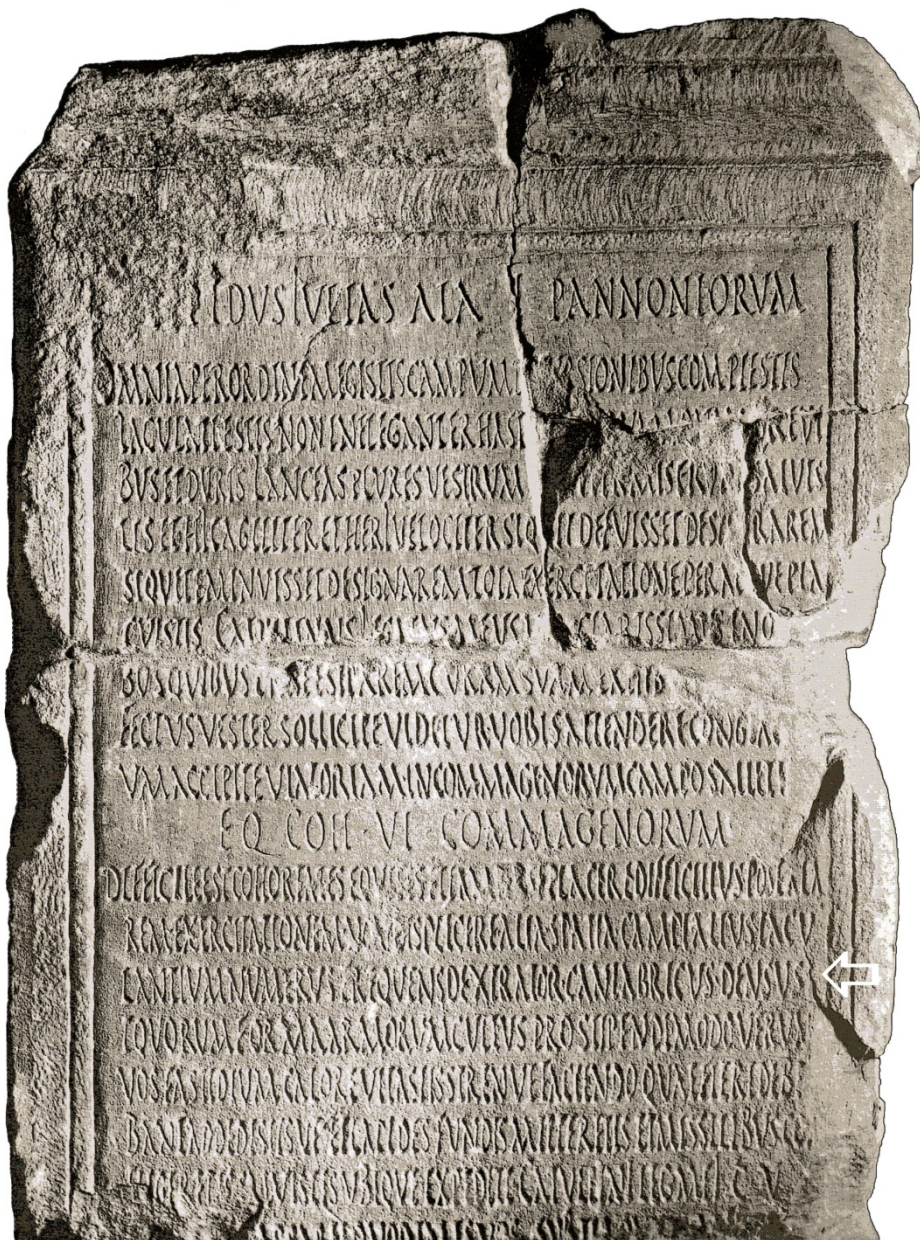 IDUS IULIAS ALA PANNONIORUM
OMNIA PER ORDINEM EGISTIS CAMPUM COMPLESTIS
IACULATI ESTIS NON INELEGANTER BREVI
BUS ET DURIS LANCEAS PLURES VESTRUM MISERUNT SALUIS
TIS ET HIC AGILITER ET HERI VELOCITER SI QUIT DEFUISSET
SI QUIT EMINUISSET DESIGNAREM TOTA EXERCITATIONE PERAEQUE PLA
CUISTIS CATULLINUS LEGATUS MEUS
BUS QUIBUS PAREM CURAM SUAM
FECTUS VESTER SOLLICITE VIDETUR VOBIS ATTENDERE CONGIA
UM ACCIPITE VIATORIAM IN COMMAGENORUM CAMPO SALIETIS
EQ COH VI COMMAGENORUM
DIFFICILE EST COHORTALES EQUITES ETIAM PER SE PLACERE DIFFICILIUS POST ALA
REM EXERCITATIONEM NON DISPLICERE ALIA SPATIA CAMPI ALIUS IACU
LANTIUM NUMERUS FREQUENS DEXTRATOR CANTABRICUS DENSUS
EQUORUM FORMA ARMORUM CULTUS PRO STIPENDI MODO VERUM
VOS FASTIDIUM CALORE VITASTIS STRENUE FACIENDO QUAE FIERI DEBE
BANT ADDIDISTIS UT ET LAPIDES FUNDIS MITTERETIS ET MISSILIBUS CO
SALUISTIS UBIQUE EXPEDITE CATULLINI LEG MEI C V